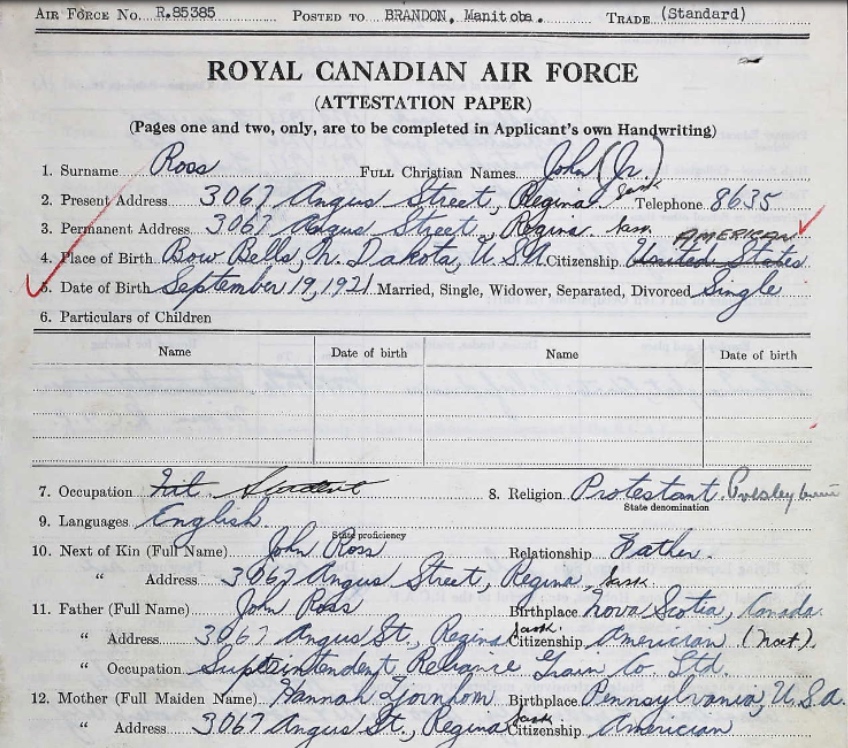 AIR FORCE NO. R.85385 POSTED TO BRANDON, Manitoba. TRADE (Standard)
ROYAL CANADIAN AIR FORCE
(ATTESTATION PAPER)
(Pages one and two, only, are to be completed in Applicant's own Handwriting)
1. Surname Ross FULL Christian Names John (Jr.)
2. Present Address 3067 Angus Street, Regina Sask Telephone 8635
3. Permanent Address 3067 Angus Street, Regina Sask.
AMERICAN
4. Place of Birth Bow Bells, N. Dakota, U.S.A Citizenship United States
5. Date of Birth September 19, 1921 Married, Single, Widower, Separated, Divorced Single
6. Particulars of Children
Name Date of birth Name Date of birth
7. Occupation Student 8. Religion Protestant. Presbyterian
State denomination
9. Languages English
State proficiency
10. Next of Kin (Full Name) John Ross Relationship Father.
" Address 3067 Angus Street, Regina Sask
11. Father (Full Name) John Ross Birthplace Nova Scotia, Canada.
" Address 3067 Angus St., Regina Sask. Citizenship American (nat).
" Occupation Suptrintendent Reliance Grain Co. Ltd.
12. Mother (Full Maiden Name) Hannah Birthplace Pennsylvania, U.S.A.
" Address 3067 Angus St., Regina Sask Citizenship American